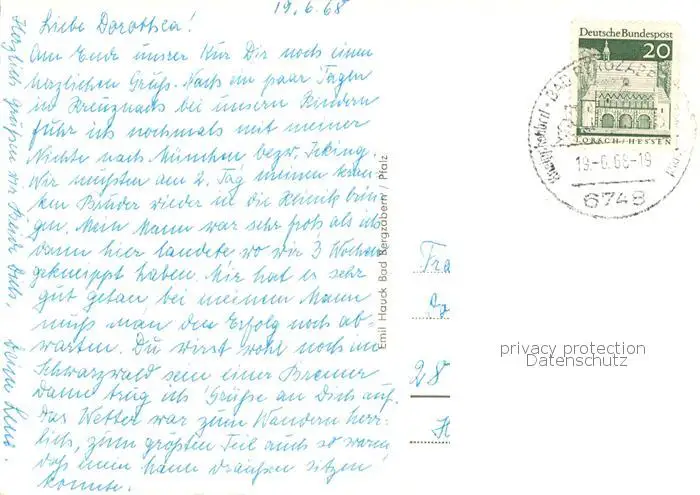 19.6.68
Liebe Dorothea!
Am Ende unsrer Kur Dir noch einen
herzlichen Gruß. Nach ein paar Tagen
in Kreuznach bei unsern Kindern
fuhr ich nochmals mit meiner
Nichte nach München bezw. Icking.
Wir mußten am 2. Tag meinen kran-
ken Bruder wieder in die Klinik brin-
gen. Mein Mann war sehr froh als ich
dann hier landete wo wir 3 Wochen
gekneippt haben. Mir hat es sehr
gut getan bei meinem Mann
muß man den Erfolg noch ab-
warten. Du wirst wohl noch im
Schwarzwald sein einer Bremer
Dame trug ich Grüße an Dich auf.
Das Wetter war zum Wandern herr-
lich, zum größten Teil auch so warm
daß man draußen sitzen
konnte.
Herzlich grüßen wir Beide Dich,
Deine Lene.
Emil Hauck Bad Bergzabern / Pfalz
Deutsche Bundespost
20
LORSCH/HESSEN
BAD BERGZABERN
19.-6.68-19
6748
Fra
28
H
privacy protection
Datenschutz